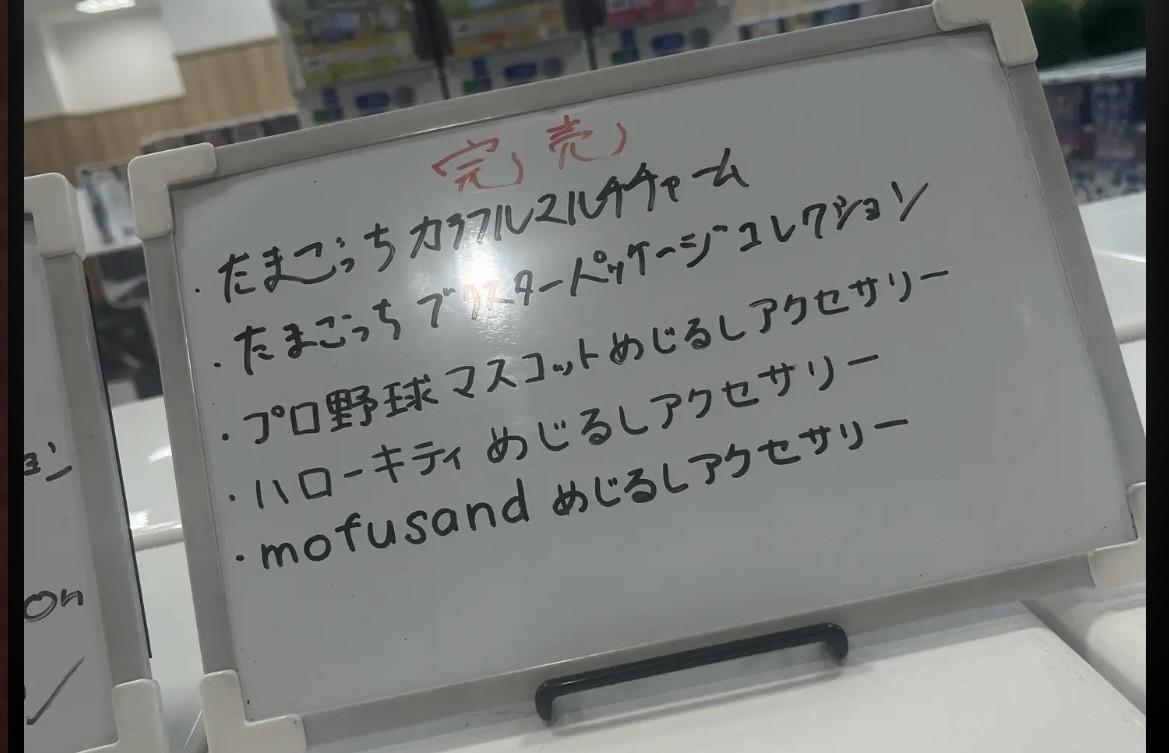 完売
・たまごっち カラフルマルチチャーム
・たまごっち ブースターパッケージコレクション
・プロ野球 マスコットめじるしアクセサリー
・ハローキティ めじるしアクセサリー
・mofusand めじるしアクセサリー
ョン
on